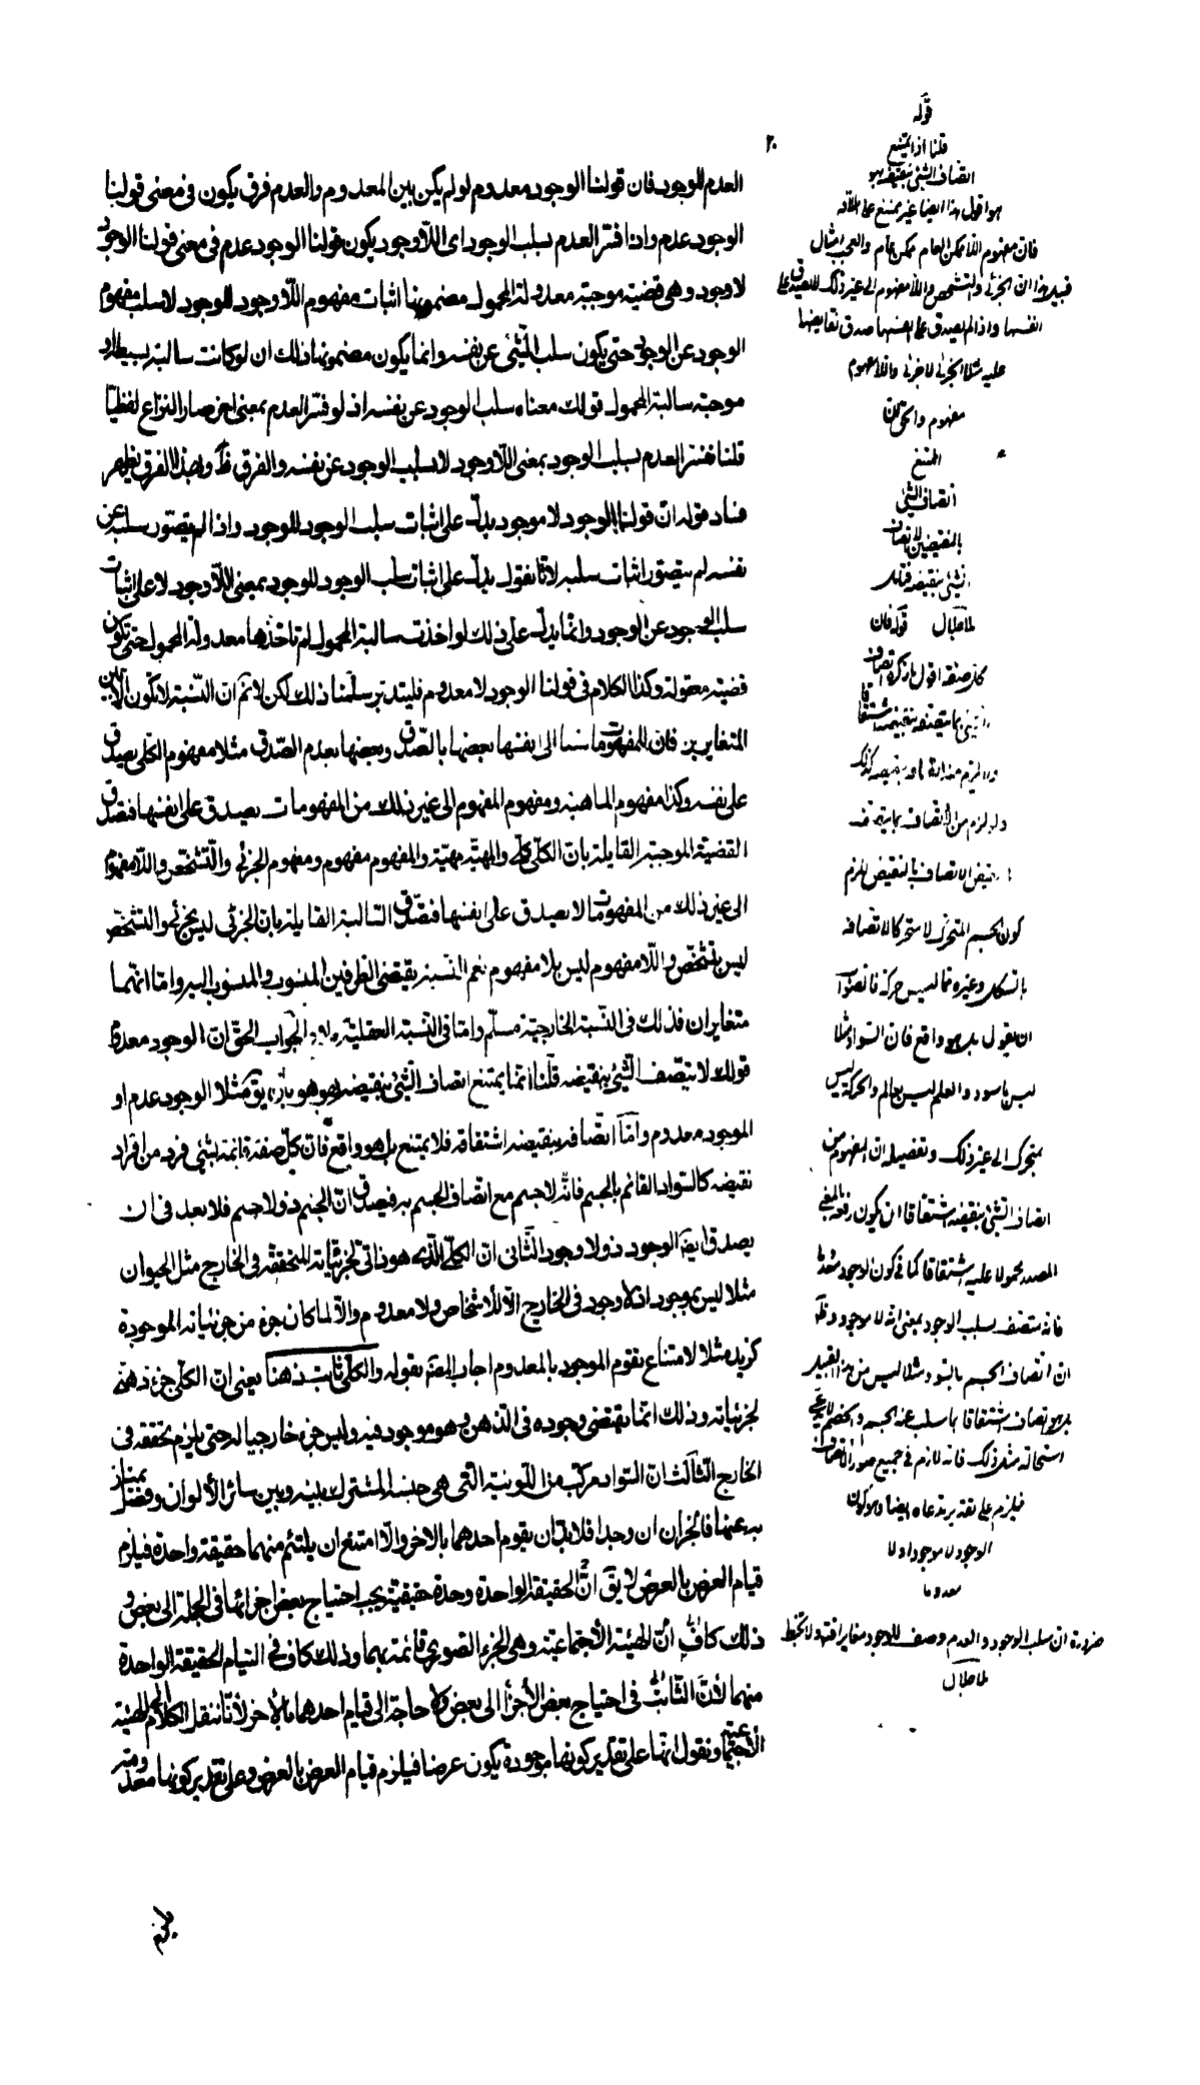 العدم للوجود فان قولنا الوجود معدوم لو لم يكن بين المعدوم والعدم فرق يكون فى معنى قولنا
الوجود عدم واذا فسّر العدم بسلب الوجود اى اللّاوجود يكون قولنا الوجود عدم فى معنى قولنا الوجود
لا وجود وهى قضية موجبة معدولة المحمول مضمونها اثبات مفهوم اللّاوجود للوجود لا سلب مفهوم
الوجود عن الوجود حتى يكون سلب الشئ عن نفسه وانما يكون مضمونها ذلك ان لو كانت سالبة بسيطة او
موجبة سالبة المحمول قولك معناه سلب الوجود عن نفسه اذ لو فسّر العدم بمعنى اخر صار النزاع لفظيّا
قلنا نفسّر العدم بسلب الوجود بمعنى اللّاوجود لا بسلب الوجود عن نفسه والفرق ظ وبهذا الفرق يظهر
فساد قوله انّ قولنا الوجود لا موجود يدلّ على اثبات سلب الوجود للوجود واذا لم يتصوّر سلبه عن
نفسه لم يتصوّر اثبات سلبه لانّا نقول يدلّ على اثبات سلب الوجود للوجود بمعنى اللّاوجود لا على اثبات
سلب الوجود عن الوجود وانّما يدلّ على ذلك لو اخذت سالبة المحمول لم تاخذها معدولة المحمول حتى تكون
قضية معقولة وكذا الكلام فى قولنا الوجود لا معدوم فليتدبّر سلّمنا ذلك لكن لا نم ان النّسبة لا تكون الا بين
المتغايرين فان للمفهومات نسبا الى انفسها بعضها بالصّدق وبعضها بعدم الصّدق مثلا مفهوم الكلّى يصدق
على نفسه وكذا مفهوم الماهية ومفهوم المفهوم الى غير ذلك من المفهومات يصدق على انفسها فتصدق
القضيّة الموجبة القايلة بان الكلّى كلّى والمهيّة مهيّة والمفهوم مفهوم ومفهوم الجزئى والتّشخّص واللّامفهوم
الى غير ذلك من المفهومات لا يصدق على انفسها فتصدق السّالبة القايلة بان الجزئى ليس بجزئى والتشخّص
ليس بتشخّص واللّامفهوم ليس بلا مفهوم نعم النّسبة يقتضى الطرفين المنسوب والمنسوب اليه وامّا انّهما
متغايران فذلك فى النّسبة الخارجيّة مسلّم وامّا فى النّسبة العقليّة فلا والجواب الحقّ ان الوجود معدوم
قولك لا يتّصف الشّئ بنقيضه قلنا انّما يمتنع اتصاف الشّئ بنقيضه بهو هو بان يق مثلا الوجود عدم او
الموجود معدوم وامّا اتّصافه بنقيضه اشتقاقا فلا يمتنع بل هو واقع فانّ كلّ صفة قائمة بشئ فرد من افراد
نقيضه كالسّواد القائم بالجسم فانّه لا جسم مع اتصاف الجسم به فيصدق انّ الجسم ذو لا جسم فلا بعد فى ان
يصدق ايضا الوجود ذو لا وجود الثّانى ان الكلّى الّذى هو ذاتى لجزئياته المتحققة فى الخارج مثل الحيوان
مثلا ليس بموجود اذ لا وجود فى الخارج الّا للاشخاص ولا معدوم والّا لما كان جزء من جزئياته الموجودة
كزيد مثلا لامتناع تقوم الموجود بالمعدوم اجاب المصّ بقوله والكلّى ثابت ذهنا يعنى ان الكلّى جزء ذهنى
لجزئياته وذلك انّما يقتضى وجوده فى الذّهن وهو موجود فيه وليس جزء خارجيا له حتى يلزم تحققه فى
الخارج الثّالث ان السّواد مركّب من اللّونية التّى هى جنسه المشترك بينه وبين سائر الألوان وفصل يمتاز
به عنها فالجزان ان وجدا فلا بدّ ان يقوم احدهما بالاخر والّا امتنع ان يلتئم منهما حقيقة واحدة فيلزم
قيام العرض بالعرض لا يق انّ الحقيقة الواحدة وحدة حقيقيّة يجب احتياج بعض اجزائها فى الجملة الى بعض و
ذلك كاف اذ الهيئة الأجتماعيّة وهى الجزء الصّورى قائمة بهما وذلك كاف فى التيام الحقيقة الواحدة
منهما لأنّ الثّابت فى احتياج بعض الأجزاء الى بعض ولا حاجة الى قيام احدهما بالأخر لأنّا ننقل الكلام الى الهيئة
الأجتماعيّة ونقول انّها على تقدير كونها موجودة يكون عرضا فيلزم قيام العرض بالعرض وعلى تقدير كونها معدومة
قوله
قلنا انما يمتنع
اتصاف الشئ بنقيضه بهو
هو اقول هذا ايضا غير ممتنع على اطلاقه
فان مفهوم اللاممكن العام ممكن عام
انفسها واذا لم يصدق على انفسها صدق نقايضها
عليه مثلا الجزئى لا جزئى واللامفهوم
مفهوم والحق ان
الممتنع
اتصاف الشئ
بالنقيضين لا اتصاف
الشئ بنقيضه فتامل
قوله فان
كل صفة اقول
كون الجسم المتحرك لا متحركا لاتصافه
بالشكل وغيره مما ليس حركة
ان يقول بل هو واقع فان السواد مثلا
ليس باسود والعلم ليس بعالم والحركة ليس
بمتحرك الى غير ذلك وتفصيله ان المفهوم من
اتصاف الشئ بنقيضه اشتقاقا ان يكون
المصدر محمولا عليه اشتقاقا كما فى كون الوجود
فانه متصف بسلب الوجود بمعنى انه لا موجود
ان اتصاف الجسم بالسواد مثلا ليس من هذا القبيل
بل هو اتصاف اشتقاقا بما سلب عنه الجسم والخصم
استحالة مثل ذلك فانه لازم فى جميع صور الاتصاف
الوجود لا موجودا ولا
معدوما
ضرورة ان سلب الوجود والعدم وصف للوجود مغاير